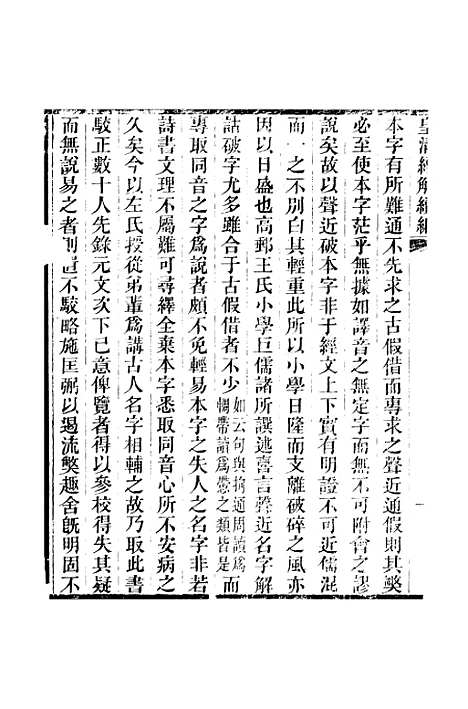 皇清經解續編
本字有所難通不先求之古假借而專求之聲近通假則其獘
必至使本字茫乎無據如譯音之無定字而無不可附會之謬
說矣故以聲近破本字非于經文上下實有明證不可近儒混
而一之不別白其輕重此所以小學日隆而支離破碎之風亦
因以日盛也高郵王氏小學巨儒諸所譔述喜言聲近名字解
詁破字尤多雖合于古假借者不少如云句與拘通周讀爲
惆帶讀爲慸之類皆是而
專取同音之字爲說者頗不免輕易本字之失人之名字非若
詩書文理不屬難可尋繹全棄本字悉取同音心所不安病之
久矣今以左氏授從弟輩爲講古人名字相輔之故乃取此書
駮正數十人先錄元文次下己意俾覽者得以參校得失其疑
而無說易之者則置不駮略施匡弼以遏流獘趣舍旣明固不